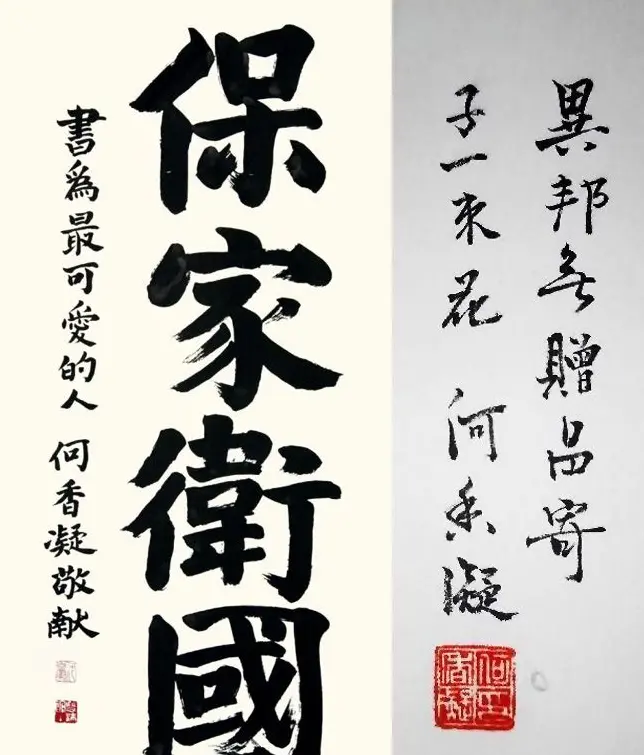 保家衛國
書爲最可愛的人 何香凝敬献
異邦無贈品寄
子一束花 何香凝